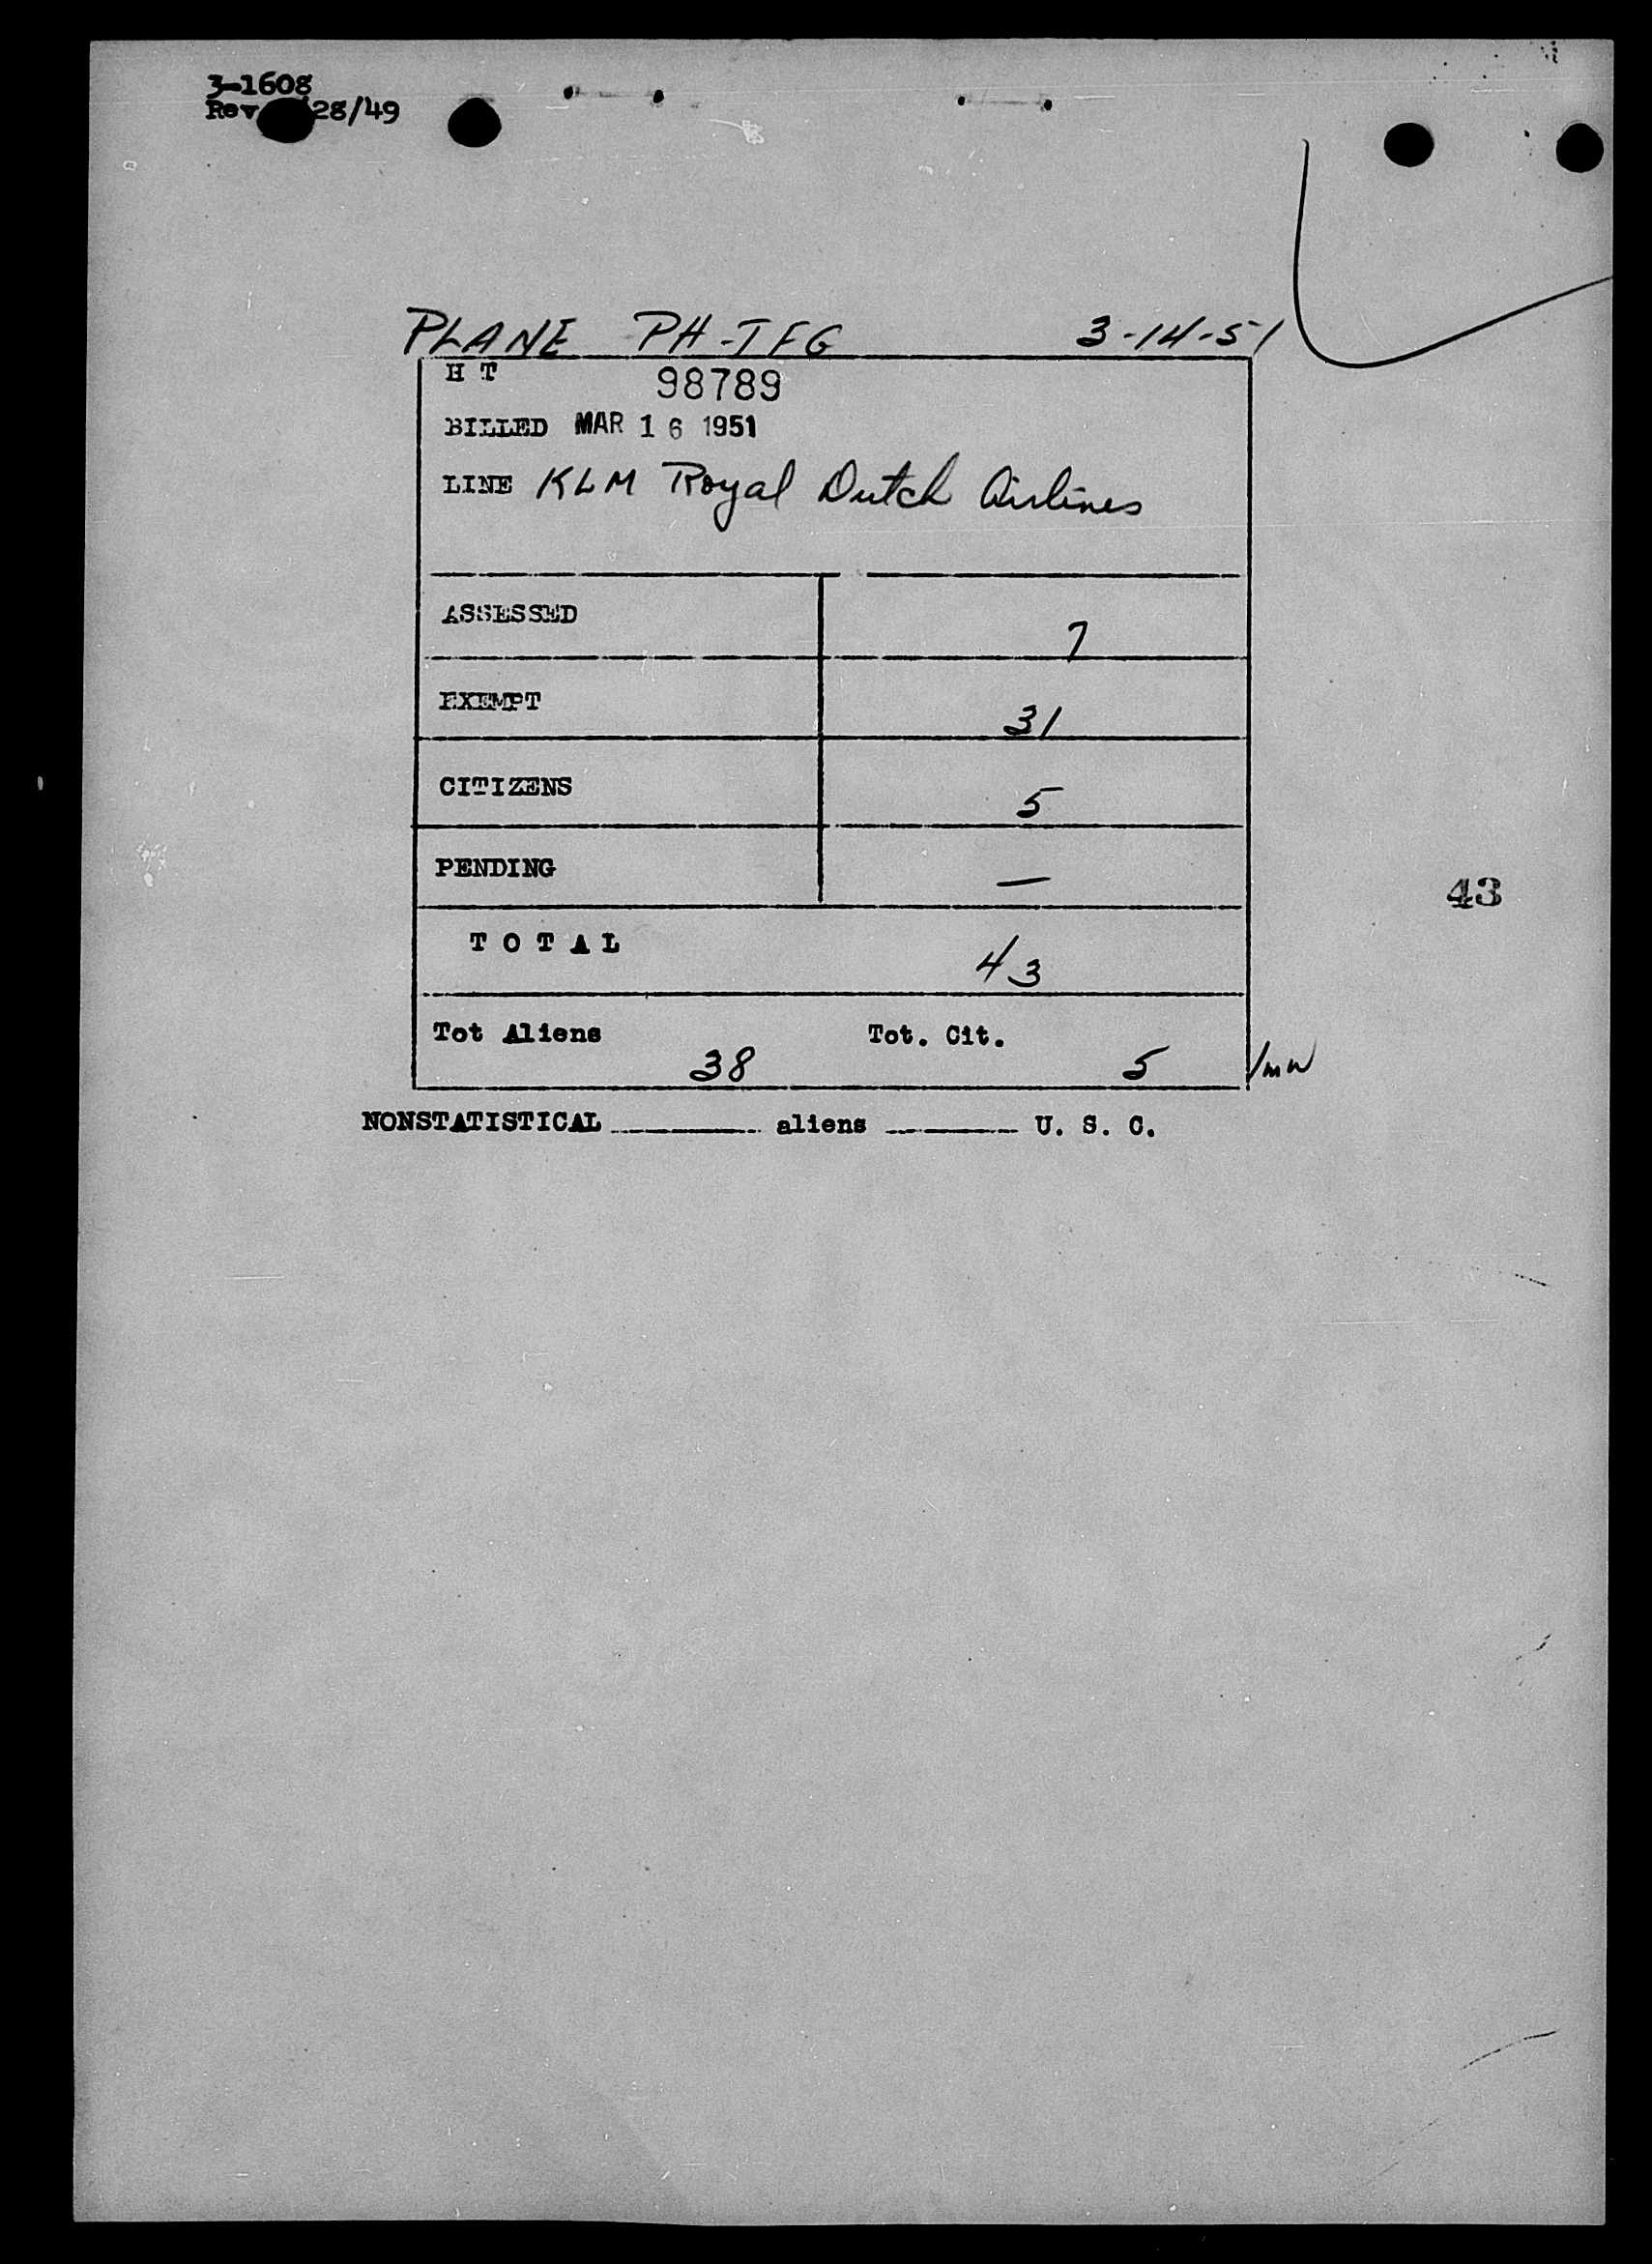 3-1608
Rev 28/49
PLANE PH-TFG 3-14-51
H T 98789
BILLED MAR 16 1951
LINE KLM Royal Dutch Airlines
ASSESSED 7
EXEMPT 31
CITIZENS 5
PENDING —
43
TOTAL 43
Tot Aliens 38 Tot. Cit. 5 /mw
NONSTATISTICAL ______ aliens ______ U. S. C.